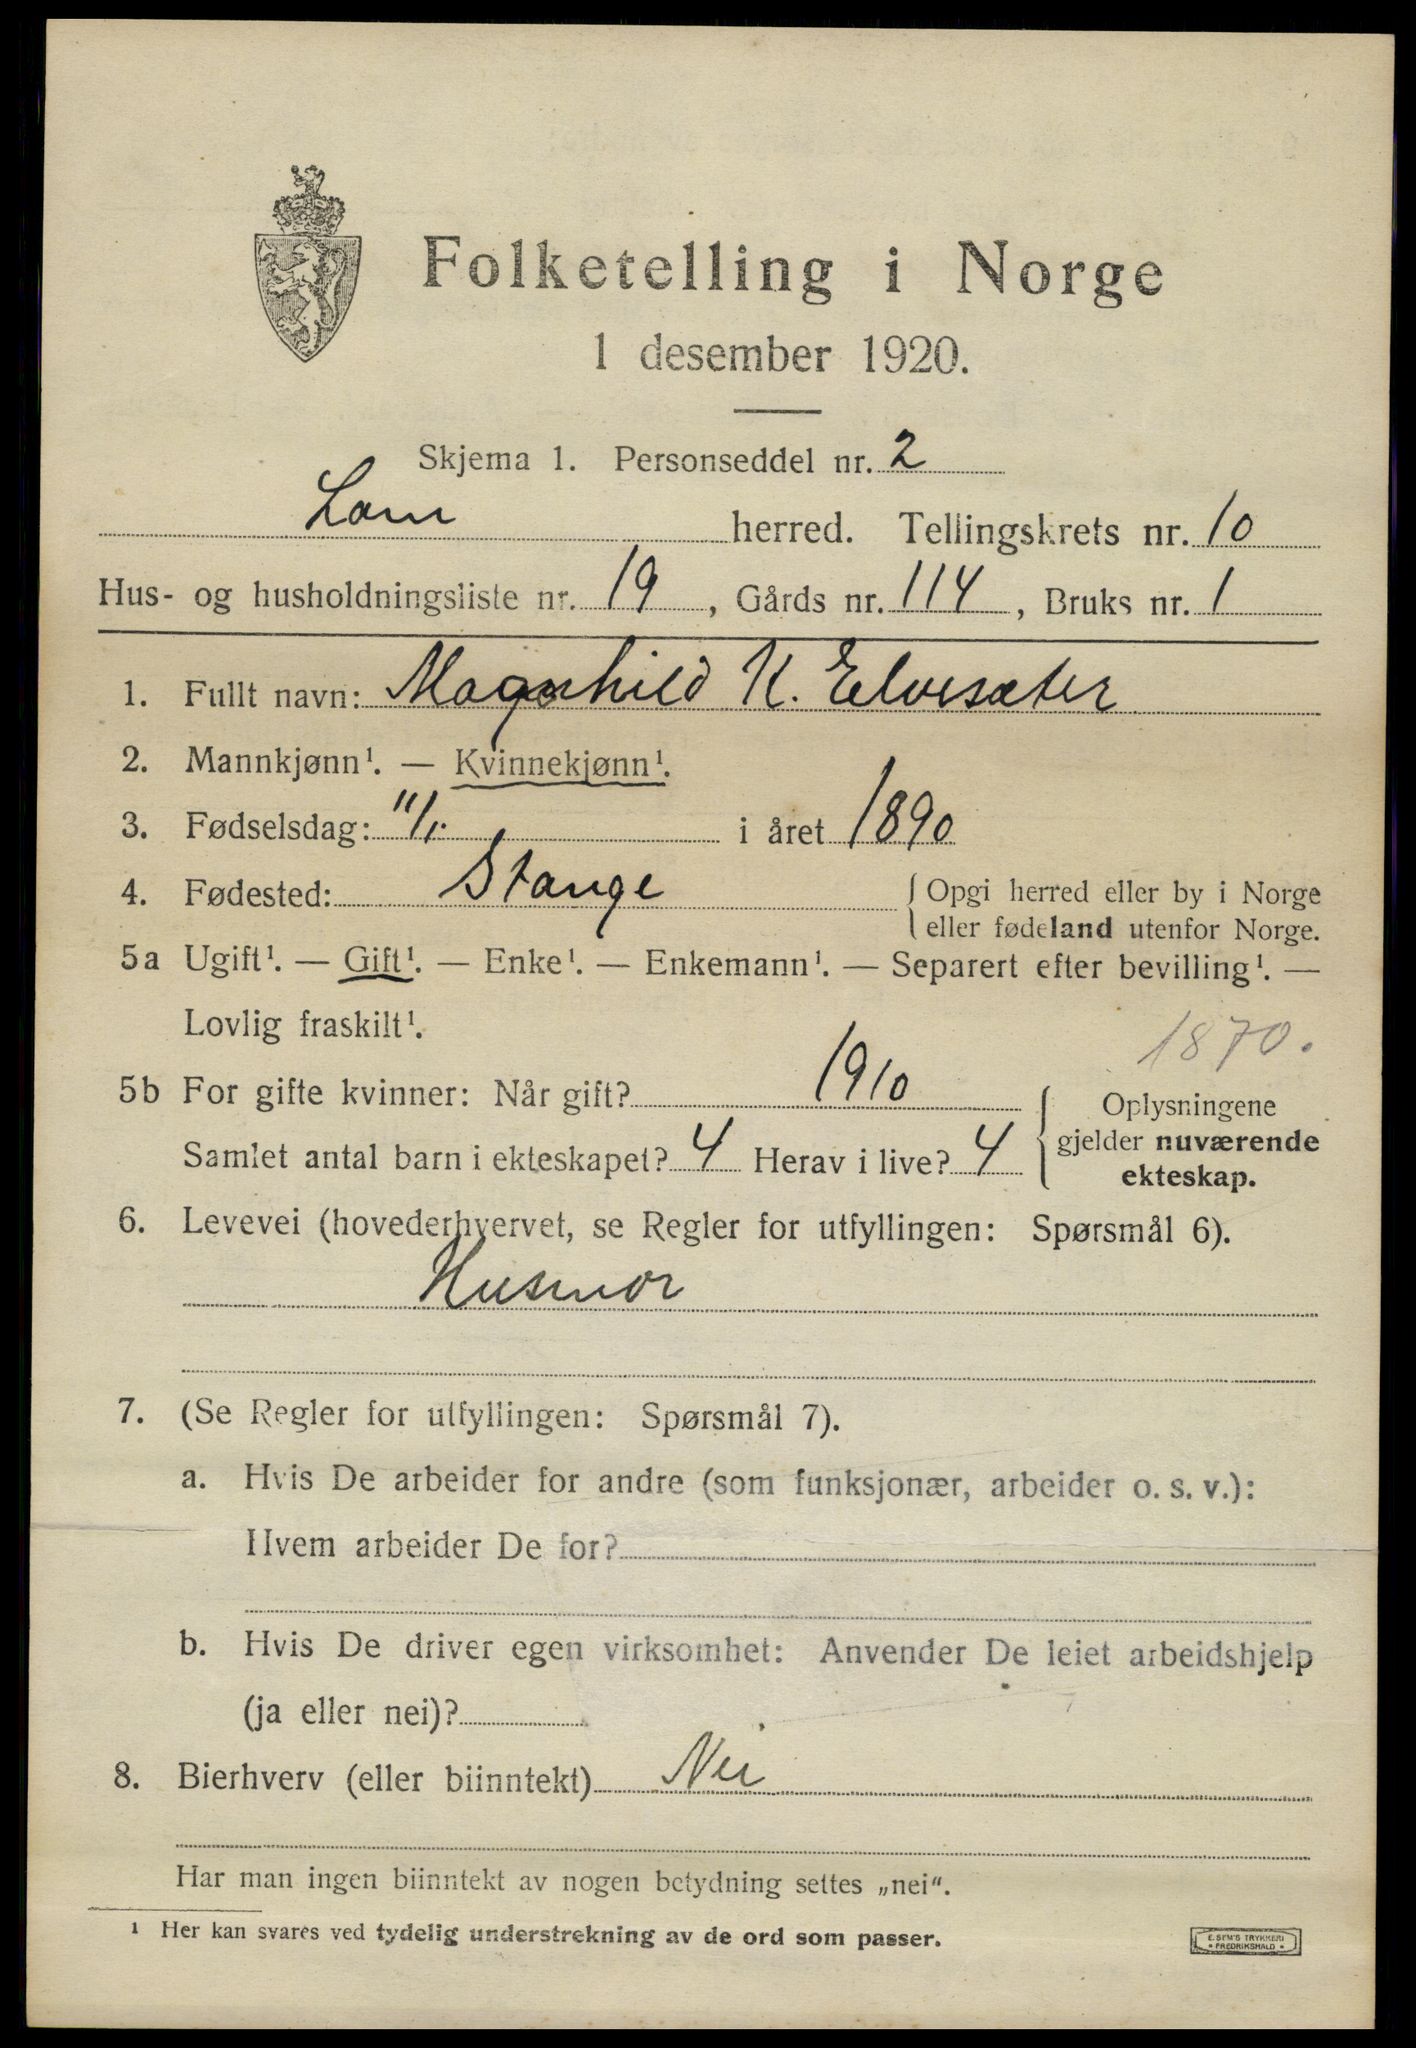 Folketelling i Norge
1 desember 1920.
Skjema 1. Personseddel nr. 2
Lom herred. Tellingskrets nr. 10
Hus- og husholdningsliste nr. 19, Gårds nr. 114, Bruks nr. 1
1. Fullt navn: Magnhild K. Elvesæter
2. Mannkjønn¹. — Kvinnekjønn¹.
3. Fødselsdag: 11/1. i året 1890
4. Fødested: Stange { Opgi herred eller by i Norge
eller fødeland utenfor Norge.
5a Ugift¹. — Gift¹. — Enke¹. — Enkemann¹. — Separert efter bevilling¹. —
Lovlig fraskilt¹.
1870.
5b For gifte kvinner: Når gift? 1910 { Oplysningene
Samlet antal barn i ekteskapet? 4 Herav i live? 4 gjelder nuværende
ekteskap.
6. Levevei (hovederhvervet, se Regler for utfyllingen: Spørsmål 6).
Husmor
7. (Se Regler for utfyllingen: Spørsmål 7).
a. Hvis De arbeider for andre (som funksjonær, arbeider o. s. v.):
Hvem arbeider De for?
b. Hvis De driver egen virksomhet: Anvender De leiet arbeidshjelp
(ja eller nei)?
8. Bierhverv (eller biinntekt) Nei
Har man ingen biinntekt av nogen betydning settes „nei“.
¹ Her kan svares ved tydelig understrekning av de ord som passer.
E. SEM'S TRYKKERI
• FREDRIKSHALD •